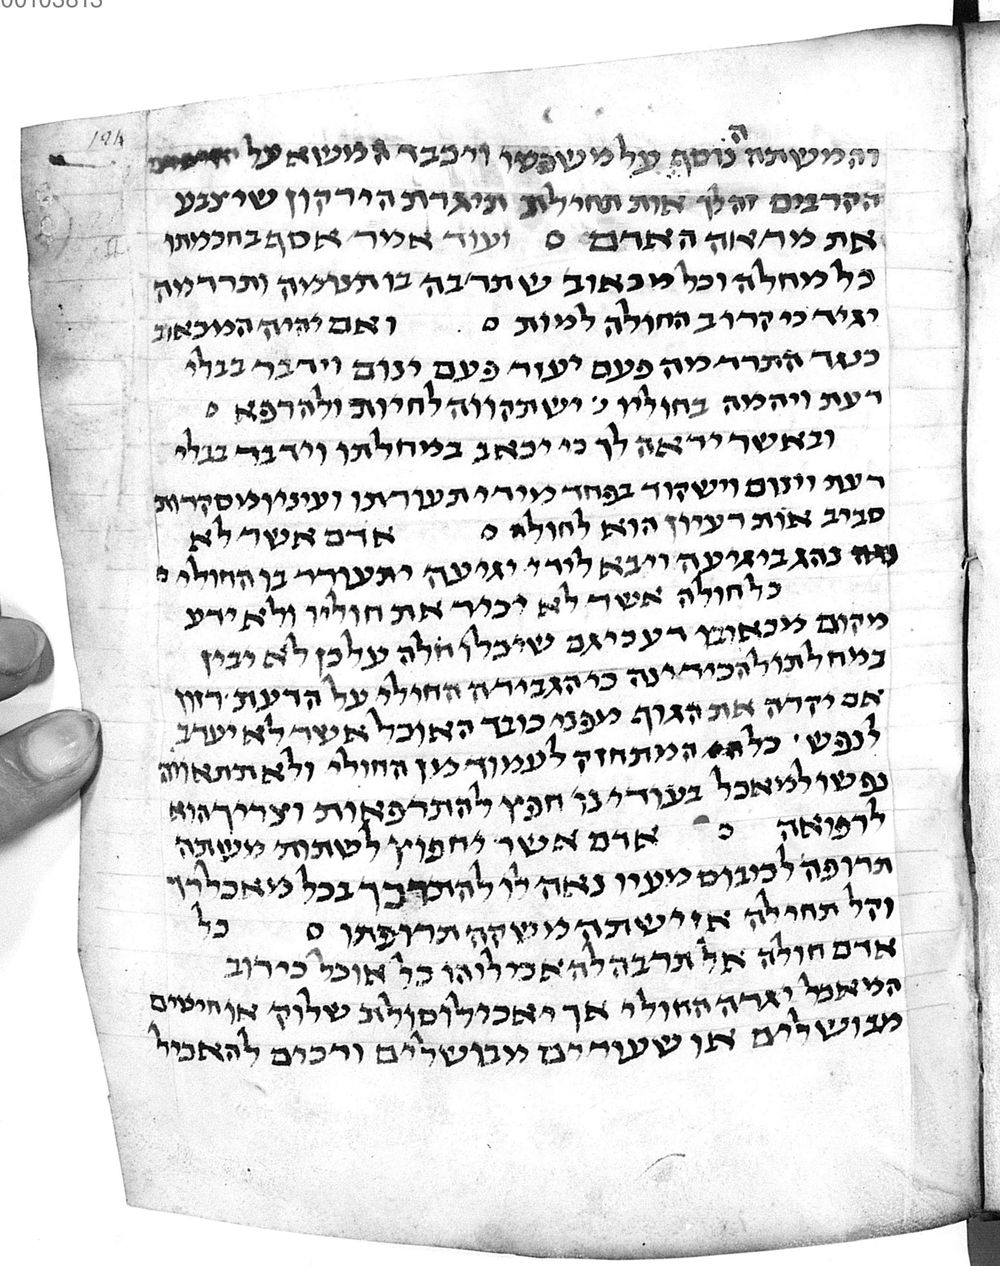 00103813
194
ה
והמשתה נוסף על משפטו ויכבד המשא על
הקרבים זה לך אות תחילת תיגרת הירקון שיצבע
את מראה האדם ס ועוד אמר אסף בחכמתו
כל מחלה וכל מכאוב שתרבה בו תנומה ותרדמה
יגיד כי קרוב החולה למות ס ואם יהיה המכאוב
כנגד התרדמה פעם יעור פעם ינום וידבר בבלי
דעת ויהמה בחוליו כי יש תקווה לחיות ולהרפא ס
ובאשר יראה לך כי יכאב במחלתו וידבר בבלי
דעת וינום וישקוד בפחד מידי תעורתו ועיניו מסקרות
סביב אות רעיון הוא לחולה ס אדם אשר לא
נהג ביגיעה ויבא לידי יגיעה יתעורר בו החולי ס
כל חולה אשר לא יכיר את חוליו ולא ידע
מקום מכאובו דע כי גם שיכלו חלה על כן לא יבין
במחלתו ולהכיר ינה כי הגבירה החולי על הדעת רזון
אם יקרה את הגוף מפני כובד האוכל אשר לא יערב
לנפש כל המתחזק לעמוד מן החולי ולא תתאוה
נפשו למאכל בעודינו חפץ להתרפאות וצריך הוא
לרפואה ס אדם אשר יחפוץ לשתות משתה
תרופה לכיבוס מעיו נאה לו להתברך בכל מאכל רך
וקל תחילה אז ישתה משקה תרופתו ס כל
אדם חולה אל תרבה להאכילוהו כל אוכל כי רוב
המאכל יגרה החולי אך יאכילו סולת שלוק או חיטים
מבושלים או שעורים מבושלים ורכים להאכיל